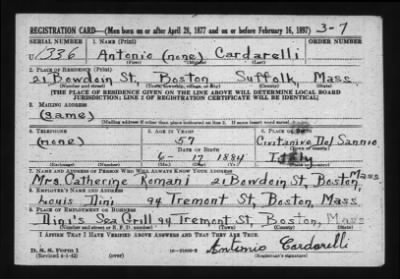 REGISTRATION CARD—(Men born on or after April 28, 1877 and on or before February 16, 1897) 3-7
SERIAL NUMBER 1. NAME (Print) ORDER NUMBER
U 1336 Antonio (none) Cardarelli
(First) (Middle) (Last)
2. PLACE OF RESIDENCE (Print)
21 Bowdoin St, Boston Suffolk, Mass
(Number and street) (Town, township, village, or city) (County) (State)
[THE PLACE OF RESIDENCE GIVEN ON THE LINE ABOVE WILL DETERMINE LOCAL BOARD
JURISDICTION; LINE 2 OF REGISTRATION CERTIFICATE WILL BE IDENTICAL]
3. MAILING ADDRESS
(same)
(Mailing address if other than place indicated on line 2. If same insert word same)
4. TELEPHONE 5. AGE IN YEARS 6. PLACE OF BIRTH
(none) 57 Civitanova Del Sannio
DATE OF BIRTH
6- 17 1884 Italy
(Exchange) (Number) (Mo.) (Day) (Yr.) (State or country)
7. NAME AND ADDRESS OF PERSON WHO WILL ALWAYS KNOW YOUR ADDRESS
Mrs Catherine Romani 21 Bowdoin St, Boston, Mass
8. EMPLOYER'S NAME AND ADDRESS
Louis Dini 94 Tremont St, Boston, Mass.
9. PLACE OF EMPLOYMENT OR BUSINESS
Dini's Sea Grill 94 Tremont St, Boston, Mass
(Number and street or R. F. D. number) (Town) (County) (State)
I AFFIRM THAT I HAVE VERIFIED ABOVE ANSWERS AND THAT THEY ARE TRUE.
D. S. S. Form 1
(Revised 4-1-42) (over) Antonio Cardarelli
(Registrant's signature)